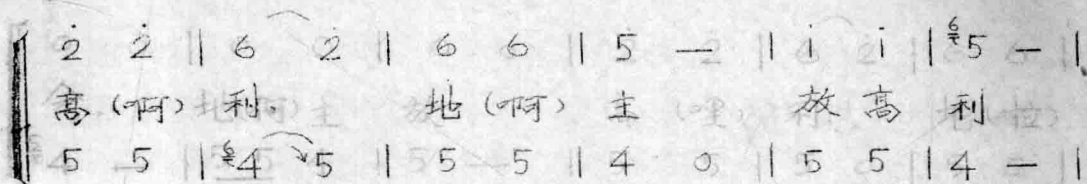 2̇ 2̇ | 6 2̇ | 6 6 | 5 — | i̇ i̇ | 6 5 — |
高（啊）利。 地（啊） 主 放 高 利
5 5 | 6 4 5 | 5 5 | 4 0 | 5 5 | 4 — |